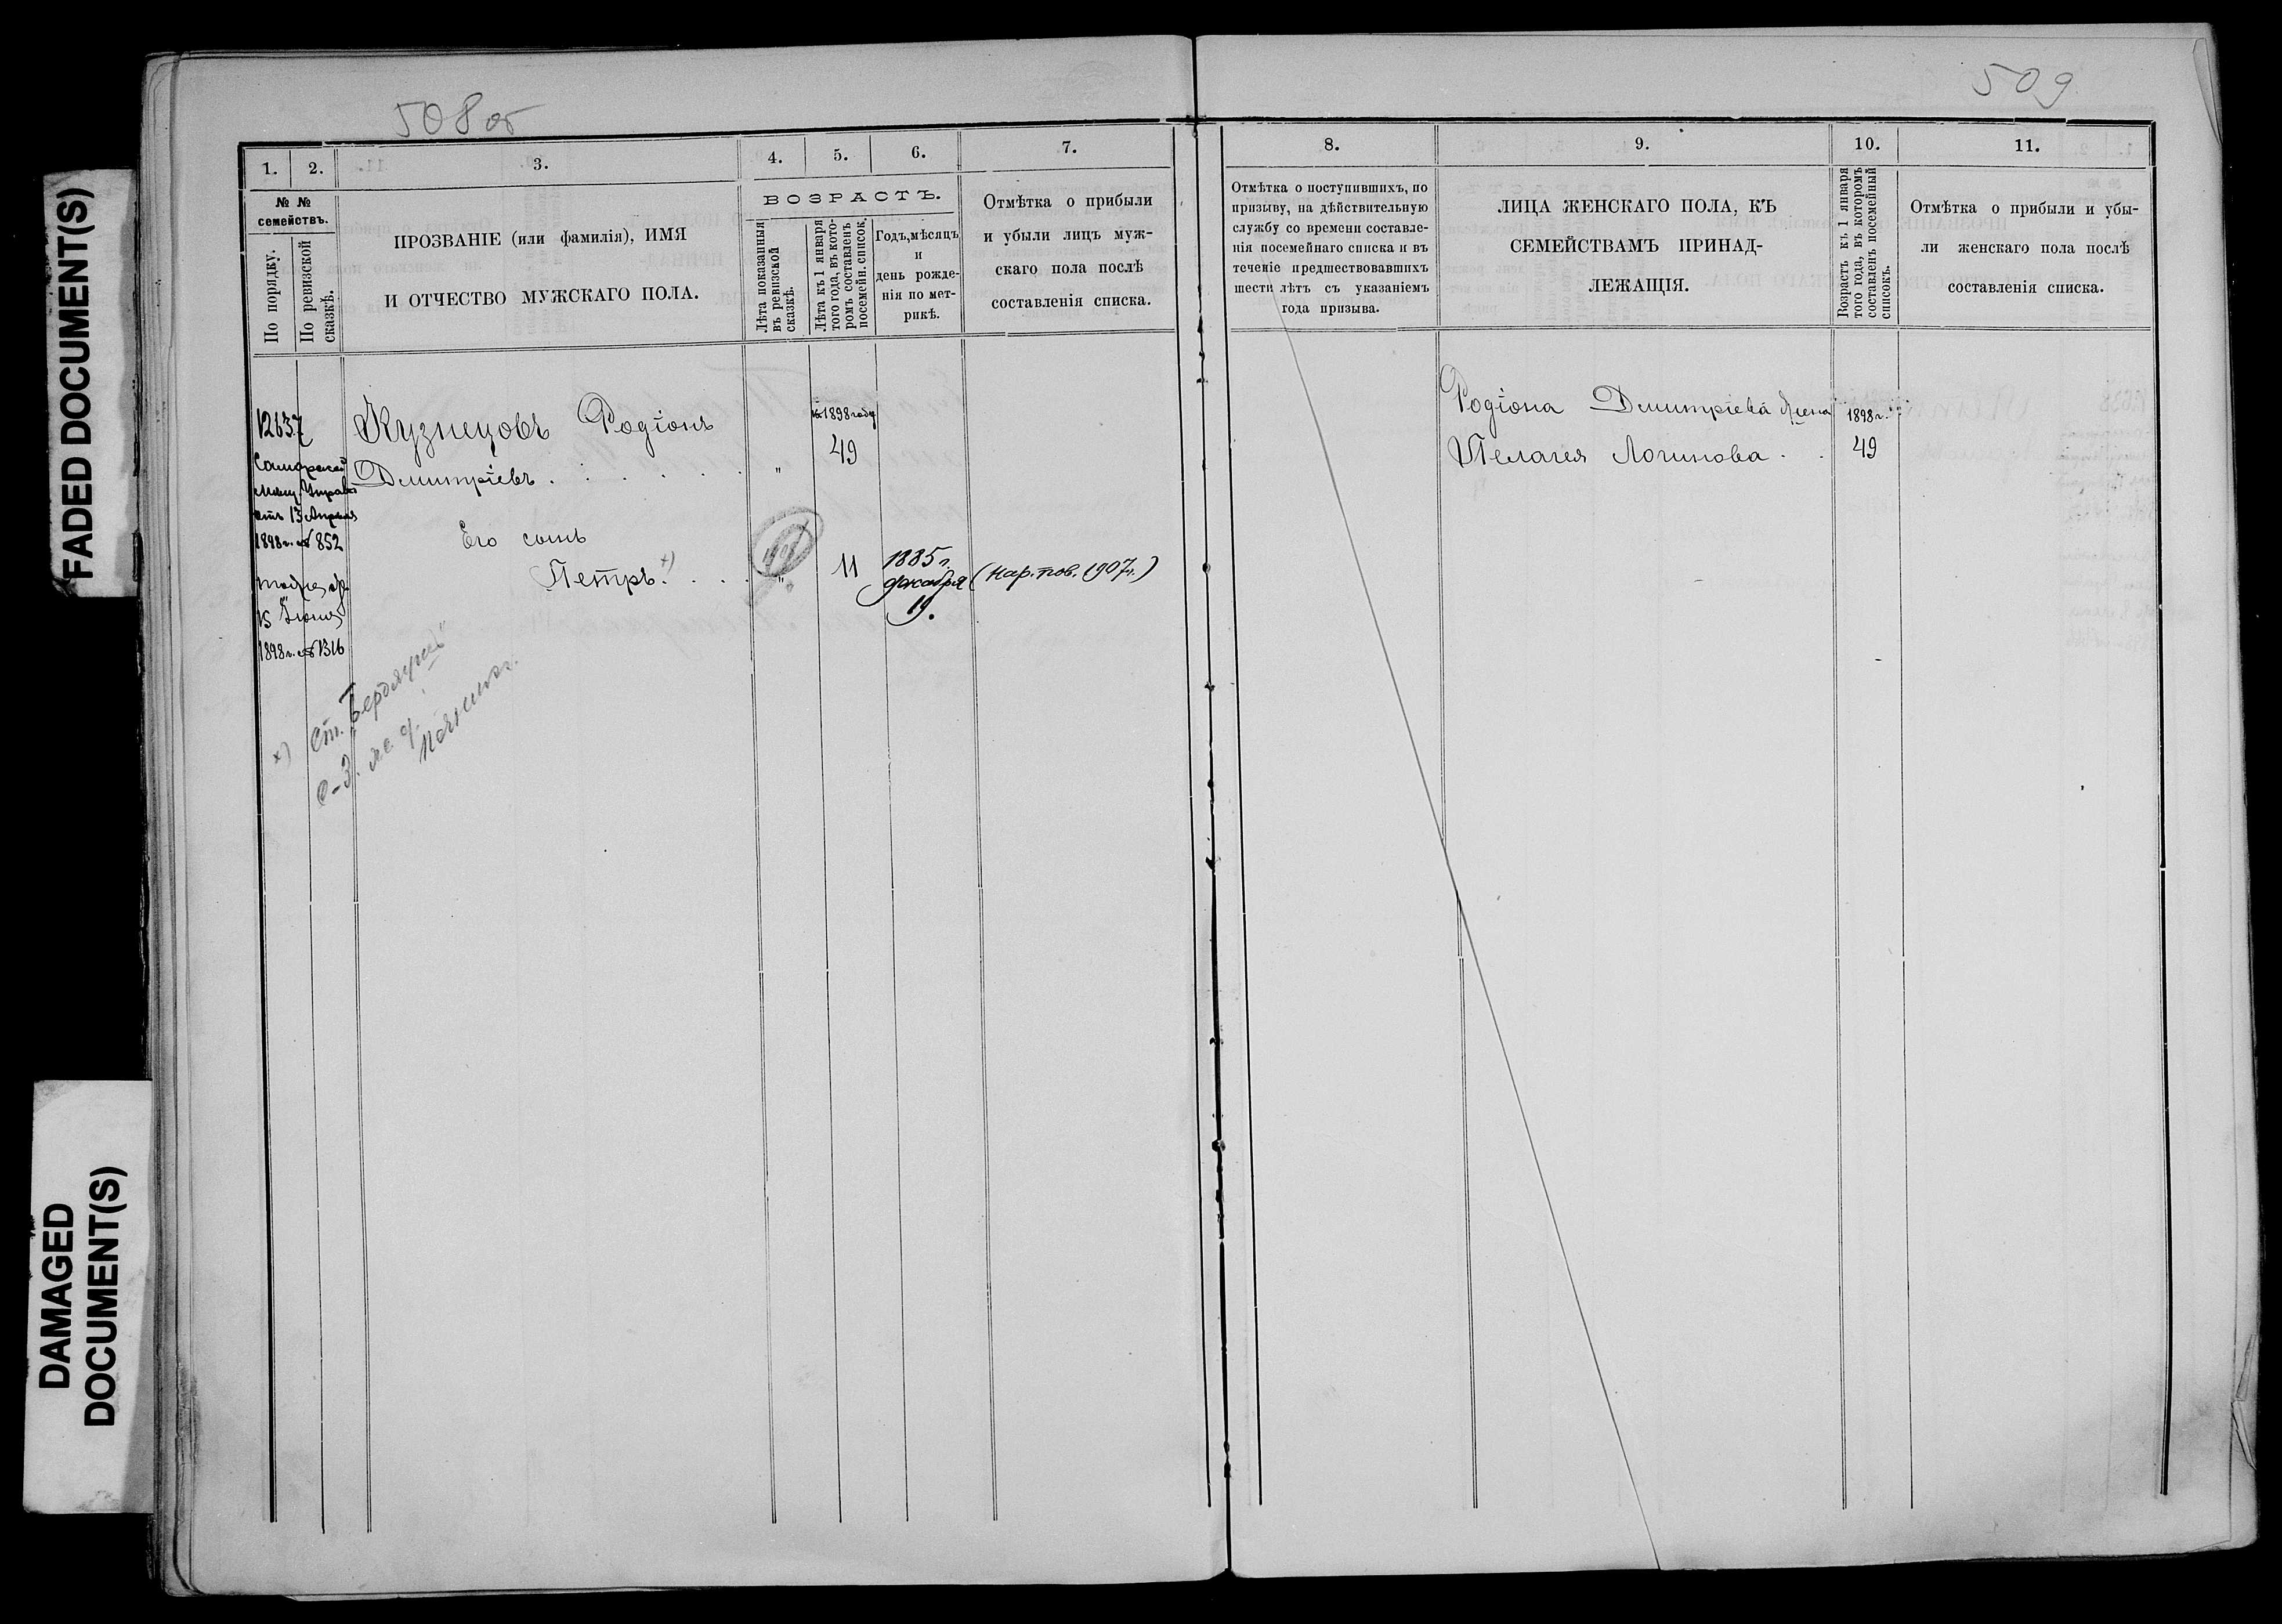 FADED DOCUMENT(S)
DAMAGED
DOCUMENT(S)
508 об
1.
2.
3.
4.
5.
6.
7.
№ №
семействъ.
По порядку.
По ревизской
сказкѣ.
ПРОЗВАНІЕ (или фамилія), ИМЯ
И ОТЧЕСТВО МУЖСКАГО ПОЛА.
ВОЗРАСТЪ.
Лѣта показанныя
въ ревизской
сказкѣ.
Лѣта къ 1 января
того года, въ кото-
ромъ составленъ
посемейн. список.
Годъ, мѣсяцъ
и
день рожде-
нія по мет-
рикѣ.
Отмѣтка о прибыли
и убыли лицъ муж-
скаго пола послѣ
составленія списка.
12637
Самарской
Мѣщ. Управы
отъ 13 Апрѣля
1898 г. № 852
15 Іюня
1898 г. № 1316
Кузнецовъ Родіонъ
Дмитріевъ . . . . .
"
въ 1898 году
49
Его сынъ
Петръ. х) . . .
"
11
1885 г.
декабря
19.
(Нар. пов. 1907 г.)
х) Ст.
509
8.
9.
10.
11.
Отмѣтка о поступившихъ, по
призыву, на дѣйствительную
службу со времени составле-
нія посемейнаго списка и въ
теченіе предшествовавшихъ
шести лѣтъ съ указаніемъ
года призыва.
ЛИЦА ЖЕНСКАГО ПОЛА, КЪ
СЕМЕЙСТВАМЪ ПРИНАД-
ЛЕЖАЩІЯ.
Возрастъ къ 1 января
того года, въ которомъ
составленъ посемейный
списокъ.
Отмѣтка о прибыли и убы-
ли женскаго пола послѣ
составленія списка.
Родіона Дмитріева жена
Пелагея Логинова . .
1898 г.
49